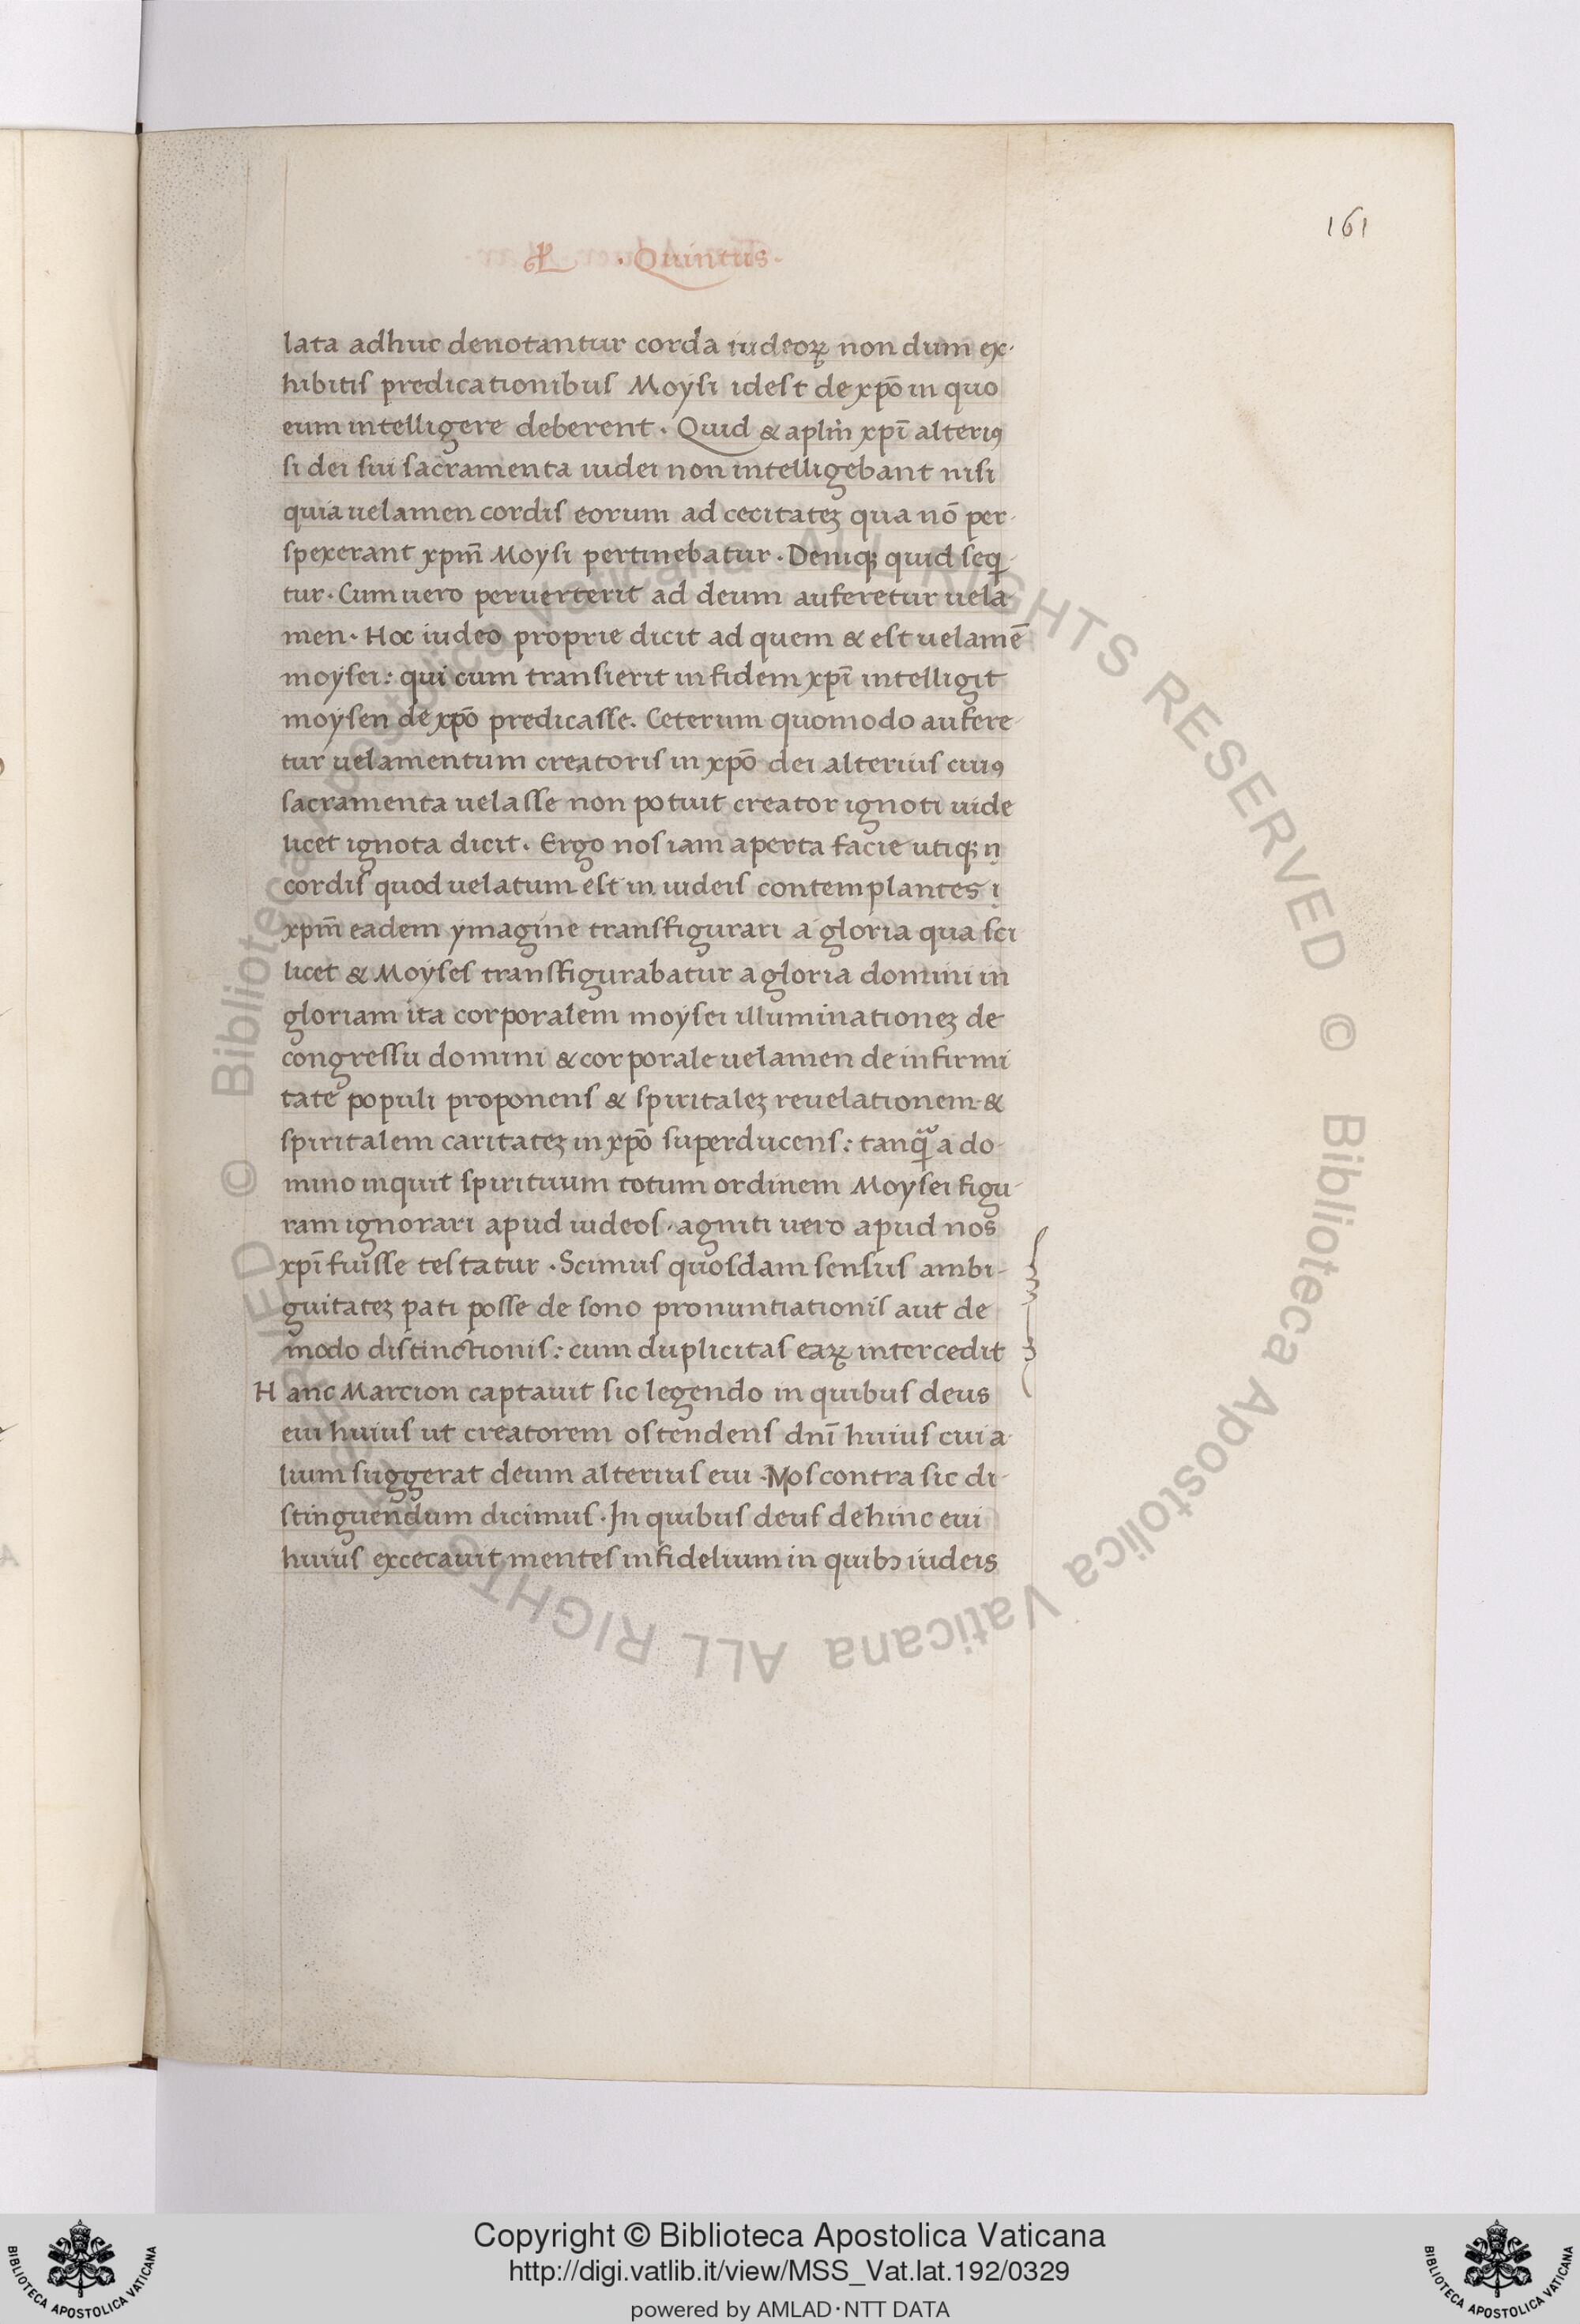 161
L. · Quintus ·
lata adhuc denotantur corda iudeoꝝ non dum ex-
hibitis predicationibus Moysi idest de xp̄o in quo
eum intelligere deberent · Quid & aplm̄ xpī alteriꝰ
si dei sui sacramenta iudei non intelligebant nisi
quia uelamen cordis eorum ad cecitateꝫ qua nō per-
spexerant xpm̄ Moysi pertinebatur · Deniqꝫ quid seqi-
tur · Cum uero peruerterit ad deum auferetur uela-
men · Hoc iudeo proprie dicit ad quem & est uelamē
moysei : qui cum transierit in fidem xpī intelligit
moysen de xpō predicasse. Ceterum quomodo aufere-
tur uelamentum creatoris in xpō dei alterius cuiꝰ
sacramenta uelasse non potuit creator ignoti uide
licet ignota dicit · Ergo nos iam aperta facie utiqꝫ n
cordis quod uelatum est in iudeis contemplantes i
xpm̄ eadem ymagine transfigurari a gloria qua sci
licet & Moyses transfigurabatur a gloria domini in
gloriam ita corporalem moysei illuminationeꝫ de
congressu domini & corporale uelamen de infirmi
tate populi proponens & spiritaleꝫ reuelationem &
spiritalem caritateꝫ in xpō superducens : tanqᷓ a do-
mino inquit spirituum totum ordinem Moysei figu-
ram ignorari apud iudeos · agniti uero apud nos
xpī fuisse testatur · Scimus quosdam sensus ambi-
guitateꝫ pati posse de sono pronuntiationis aut de
modo distinctionis : cum duplicitas eaꝝ intercedit
Hanc Marcion captauit sic legendo in quibus deus
eui huius ut creatorem ostendens dnī huius cui a-
lium suggerat deum alterius eui · Nos contra sic di-
stinguendum dicimus · In quibus deus dehinc eui
huius excecauit mentes infidelium in quibꝫ iudeis
© Biblioteca Apostolica Vaticana ALL RIGHTS RESERVED © Biblioteca Apostolica Vaticana ALL RIGHTS RESERVED
Copyright © Biblioteca Apostolica Vaticana
http://digi.vatlib.it/view/MSS_Vat.lat.192/0329
powered by AMLAD·NTT DATA
BIBLIOTECA APOSTOLICA VATICANA
BIBLIOTECA APOSTOLICA VATICANA